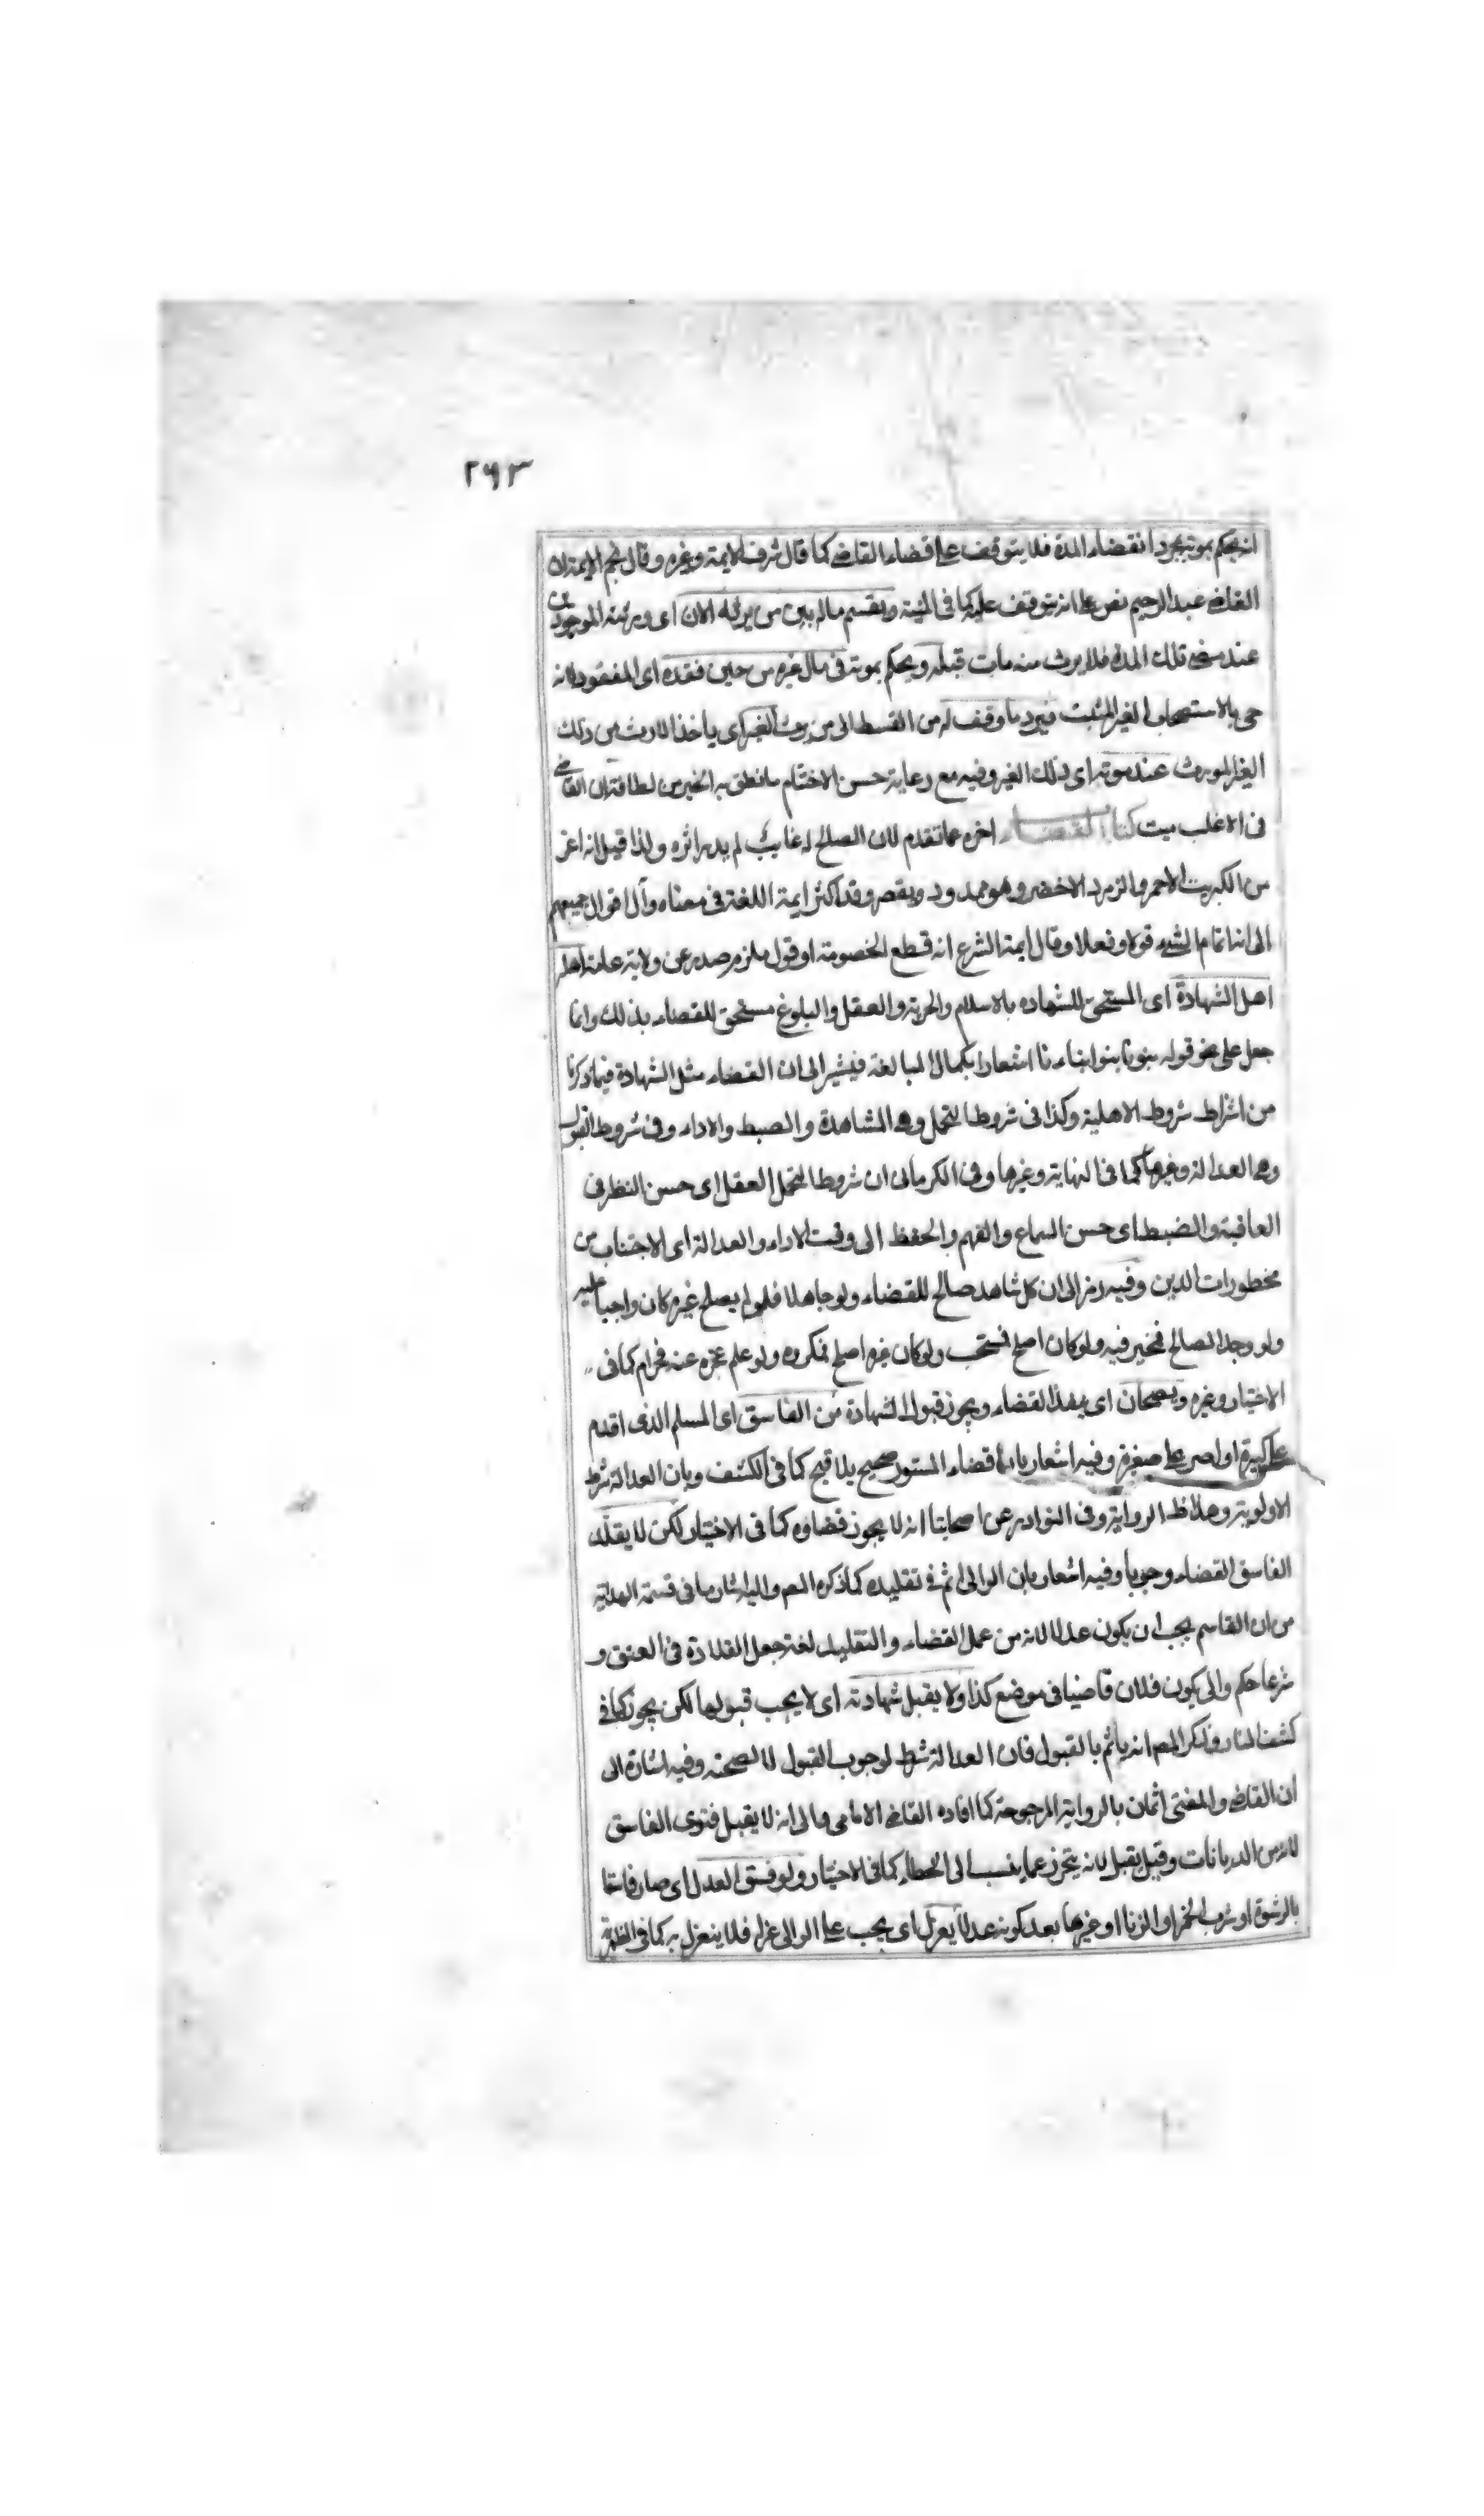 ٢٩٣
انه يحكم بموته بمجرد انقضاء المدة فلا يتوقف على قضاء القاضي كما قال شرف الايمة وغيره وقال نجم الايمة ان
القاضي عبد الرحيم نص على انه يتوقف عليه كما في المنية ويقسم ماله بين من يرثه الان اى ورثته الموجودين
عند مضى تلك المدة فلا يرث منه مات قبله ويحكم بموته فى مال غيره من حين فقده اى المفقود لانه
حى بالاستصحاب الغير المثبت فيرد ما وقف له من القسط الى من يرث الغير اى ياخذ الارث من ذلك
الغير المورث عند موته اى ذلك الغير وفيه مع رعاية حسن الاختتام ما نطق به الخبر من لطافة ان القاضى
فى الاغلب ميت كتاب القضاء اخره عما تقدم لان الصالح له غائب لم يدر اثره ولذا قيل انه اعز
من الكبريت الاحمر والزمرد الاخضر وهو ممدود ويقصر وقد اكثر ايمة اللغة فى معناه وآل اقوال جميعهم
الى انه اتمام الشىء قولا وفعلا وقال ايمة الشرع انه قطع الخصومة او قول ملزم صدر عن ولاية عامة اهله
اهل الشهادة اى المستحق للشهاده بالاسلام والحرية والعقل والبلوغ مستحق للقضاء بذلك وانما
جعل على نحو قوله بنونا بنوا ابناءنا اشعارا بكمال المبالغة فيشير الى ان القضاء مثل الشهادة فيما ذكرنا
من اشتراط شروط الاهلية وكذا فى شروط التحمل وهى المشاهدة والضبط والاداء وفى شروط القبول
وهى العدالة وغيرها كما فى النهاية وغيرها وفى الكرمانى ان شروط التحمل العقل اى حسن النظر فى
العاقبة والضبط اى حسن السماع والفهم والحفظ الى وقت الاداء والعدالة اى الاجتناب من
محظورات الدين وفيه رمز الى ان كل شاهد صالح للقضاء ولو جاهلا فلو لم يصلح غيره كان واجبا عليه
ولو وجد الصالح فمخير فيه ولو كان اصلح فمستحب ولو كان غيره اصلح فمكروه ولو علم عجزه عنه فحرام كما فى
الاختيار وغيره ويصحان اى ينفذ القضاء ويجوز قبول الشهادة من الفاسق اى المسلم الذى اقدم
على كبيرة او اصر على صغيرة وفيه اشعار بان قضاء المستور صحيح بلا قبح كما فى الكشف وبان العدالة شرط
الاولوية وهذا ظ الرواية وفى النوادر عن اصحابنا انه لا يجوز قضاوه كما فى الاختيار لكن لا يقلد
الفاسق القضاء وجوبا وفيه اشعار بان الوالى اثم فى تقليده كما ذكره المص واليه اشار ما فى قسمة الهداية
من ان القاسم يجب ان يكون عدلا لانه من عمل القضاء والتقليد لغة جعل القلادة فى العنق و
شرعا حكم والى بكون فلان قاضيا فى موضع كذا ولا يقبل شهادته اى لا يجب قبولها لكن يجوز كما فى
كشف المنار وذكر المص انه ياثم بالقبول فان العدالة شرط لوجوب القبول لا لصحته وفيه اشارة الى
ان القاضى والمفتى اثمان بالرواية المرجوحة كما افاده القاضى الامامى والى انه لا يقبل فتوى الفاسق
لانه من الديانات وقيل يقبل لانه يتحرز عما ينسب الى الخطاء كما فى الاختيار ولو فسق العدل اى صار فاسقا
بالرشوة او شرب الخمر او الزنا او غيرها بعد كونه عدلا يعزل اى يجب على الوالى عزله فلا ينعزل به كما فى